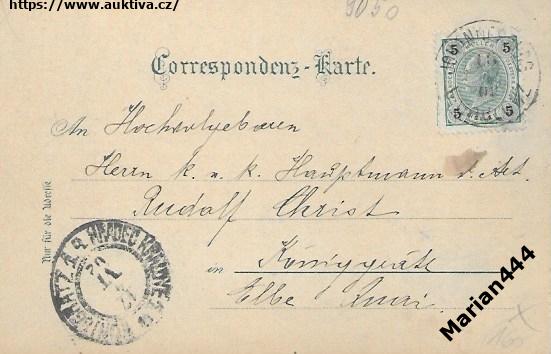 https://www.auktiva.cz/
9050
5 5
5 5
Correspondenz-Karte.
An Hochwolgeboren
Herrn k. u. k. Hauptmann d. Art.
Rudolf Christ
Nur für die Adresse
HRADEC KRÁLOVÉ 1
KÖNIGGRÄTZ 1
in Königgrätz
Elbe
Marian444